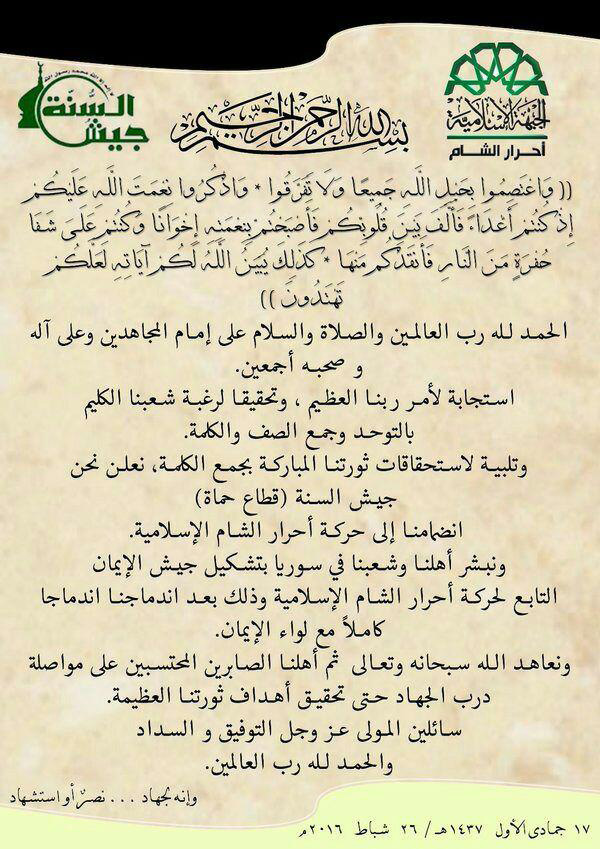 لا إله إلا الله محمد رسول الله
جيش السنة
الجبهة الإسلامية
أحرار الشام
بسم الله الرحمن الرحيم
(( وَاعْتَصِمُوا بِحَبْلِ اللَّهِ جَمِيعًا وَلَا تَفَرَّقُوا * وَاذْكُرُوا نِعْمَتَ اللَّهِ عَلَيْكُمْ
إِذْ كُنْتُمْ أَعْدَاءً فَأَلَّفَ بَيْنَ قُلُوبِكُمْ فَأَصْبَحْتُمْ بِنِعْمَتِهِ إِخْوَانًا وَكُنْتُمْ عَلَىٰ شَفَا
حُفْرَةٍ مِنَ النَّارِ فَأَنْقَذَكُمْ مِنْهَا * كَذَٰلِكَ يُبَيِّنُ اللَّهُ لَكُمْ آيَاتِهِ لَعَلَّكُمْ
تَهْتَدُونَ ))
الحمد لله رب العالمين والصلاة والسلام على إمام المجاهدين وعلى آله
و صحبه أجمعين.
استجابة لأمر ربنا العظيم ، وتحقيقا لرغبة شعبنا الكليم
بالتوحد وجمع الصف والكلمة.
وتلبية لاستحقاقات ثورتنا المباركة بجمع الكلمة، نعلن نحن
جيش السنة (قطاع حماة)
انضمامنا إلى حركة أحرار الشام الإسلامية.
ونبشر أهلنا وشعبنا في سوريا بتشكيل جيش الإيمان
التابع لحركة أحرار الشام الإسلامية وذلك بعد اندماجنا اندماجا
كاملاً مع لواء الإيمان.
ونعاهد الله سبحانه وتعالى ثم أهلنا الصابرين المحتسبين على مواصلة
درب الجهاد حتى تحقيق أهداف ثورتنا العظيمة.
سائلين المولى عز وجل التوفيق و السداد
والحمد لله رب العالمين.
وإنه لجهاد ... نصرٌ أو استشهاد
١٧ جمادى الأول ١٤٣٧هـ / ٢٦ شباط ٢٠١٦م